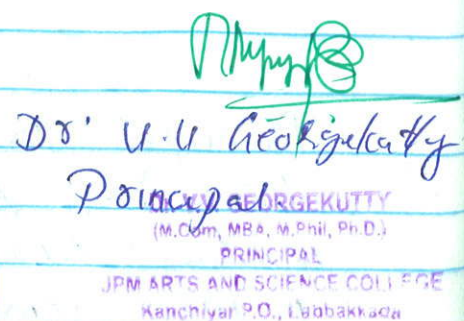 Dr. V.V Georgekutty
Principal
Dr. V.V GEORGEKUTTY
(M.Com, MBA, M.Phil, Ph.D.)
PRINCIPAL
JPM ARTS AND SCIENCE COLLEGE
Kanchiyar P.O., Labbakkada